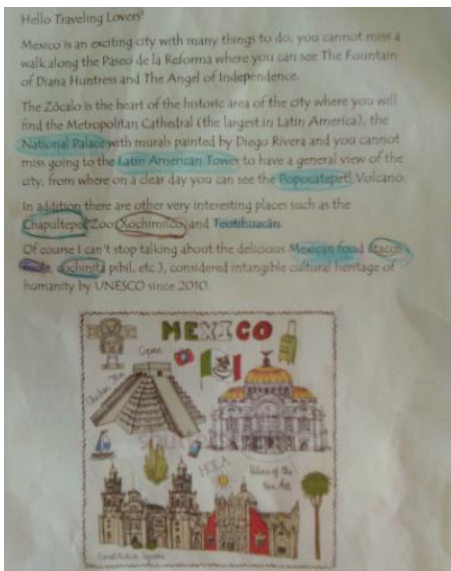 Hello Traveling Lovers!
Mexico is an exciting city with many things to do, you cannot miss a
walk along the Paseo de la Reforma where you can see The Fountain
of Diana Huntress and The Angel of Independence.
The Zócalo is the heart of the historic area of the city where you will
find the Metropolitan Cathedral (the largest in Latin America), the
National Palace with murals painted by Diego Rivera and you cannot
miss going to the Latin American Tower to have a general view of the
city, from where on a clear day you can see the Popocatepetl Volcano.
In addition there are other very interesting places such as the
Chapultepec Zoo Xochimilco, and Teotihuacán.
Of course I can't stop talking about the delicious Mexican food (tacos,
mole, cochinita pibil, etc.), considered intangible cultural heritage of
humanity by UNESCO since 2010.
MEXICO
HOLA
Palace of the
Constitution Square